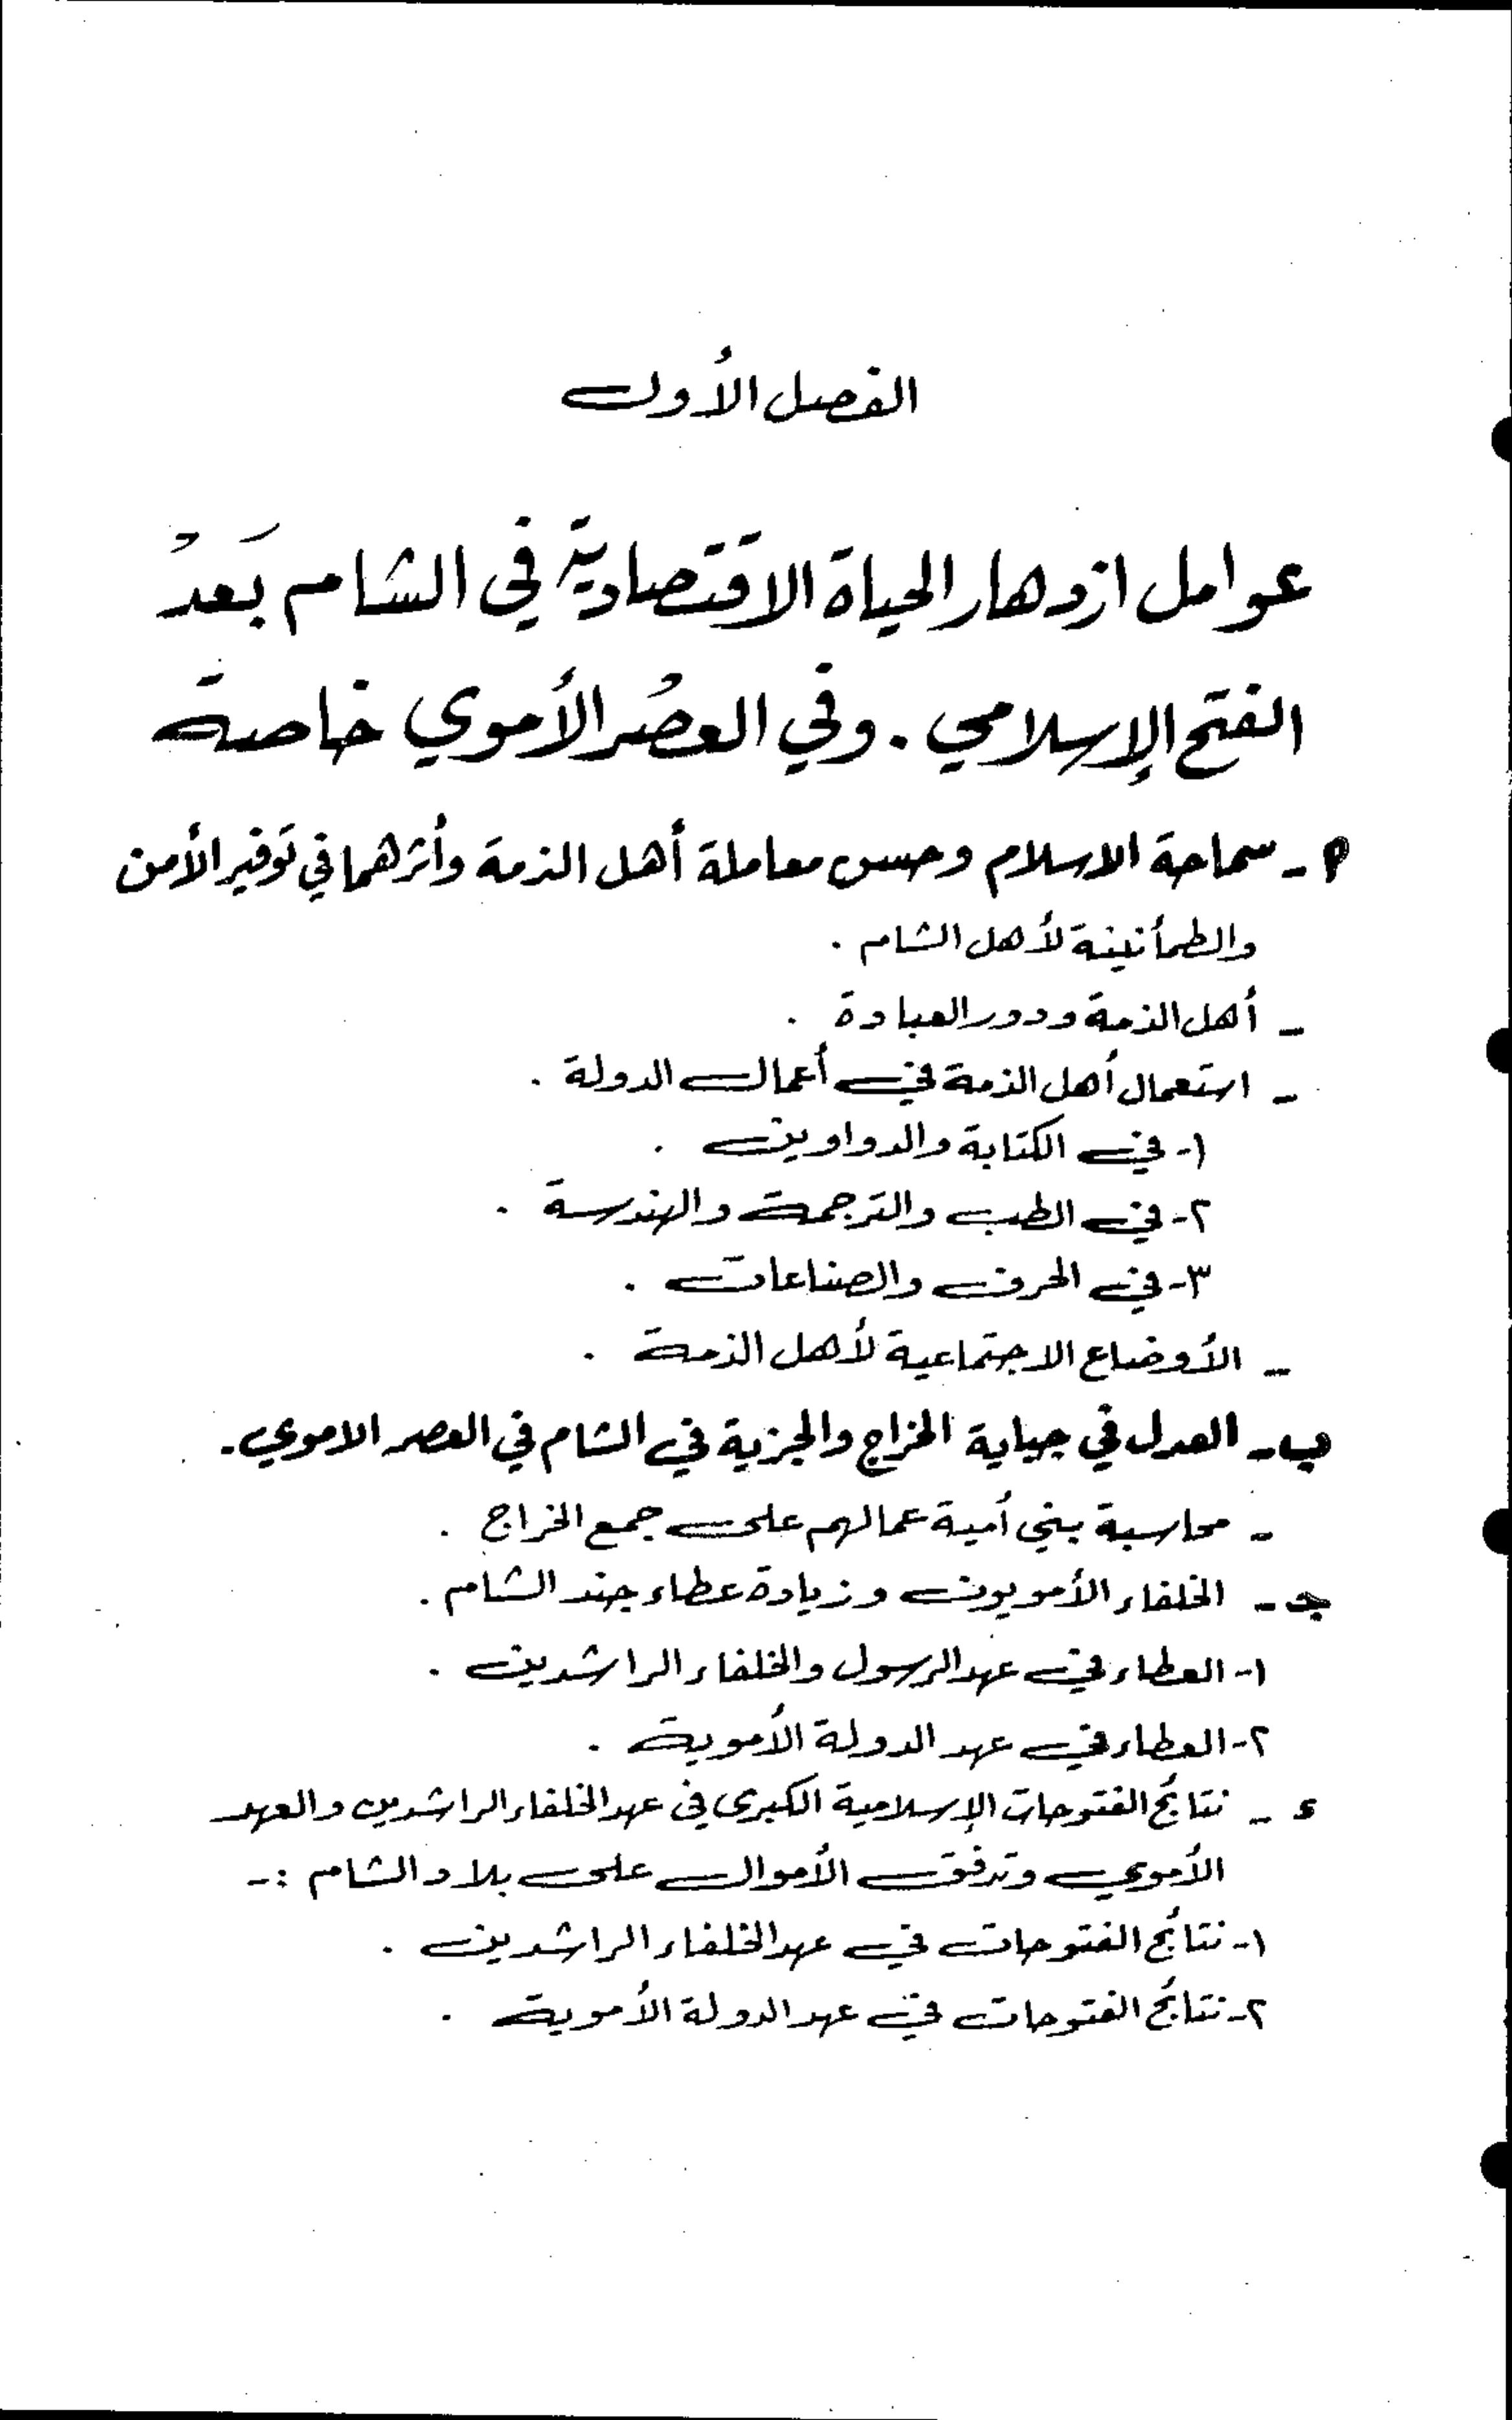 الفصل الأول
عوامل ازدهار الحياة الاقتصادية في الشام بَعدُ
الفتح الإسلامي . وفي العصر الأموي خاصة
م - سماحة الاسلام وحسن معاملة أهل الذمة وأثرهما في توفير الأمن
والطمأنينة لأهل الشام .
- أهل الذمة ودور العبادة .
- استعمال أهل الذمة في أعمال الدولة .
١- في الكتابة والدواوين .
٢- في الطب والترجمة والهندسة .
٣- في الحرف والصناعات .
- الأوضاع الاجتماعية لأهل الذمة .
ب - العدل في جباية الخراج والجزية في الشام في العصر الاموي .
- محاسبة بني أمية عمالهم على جمع الخراج .
جـ - الخلفاء الأمويون وزيادة عطاء جند الشام .
١- العطاء في عهد الرسول والخلفاء الراشدين .
٢- العطاء في عهد الدولة الأموية .
د - نتائج الفتوحات الإسلامية الكبرى في عهد الخلفاء الراشدين والعهد
الأموي وتدفق الأموال على بلاد الشام :-
١- نتائج الفتوحات في عهد الخلفاء الراشدين .
٢- نتائج الفتوحات في عهد الدولة الأموية .